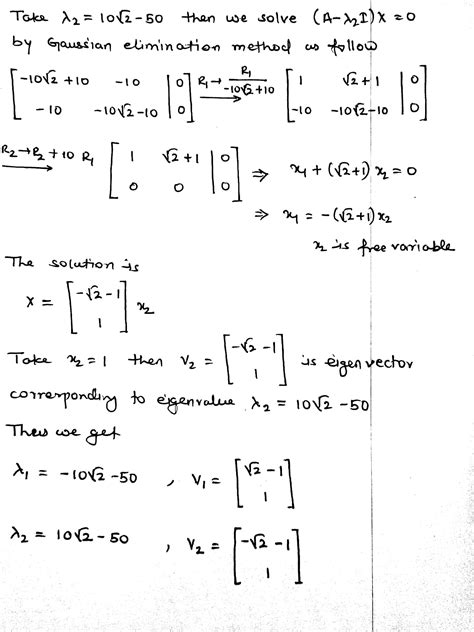 Take λ₂ = 10√2 -50 then we solve (A-λ₂I)X = 0
by Gaussian elimination method as follow
[ -10√2 +10 -10 | 0 ; -10 -10√2 -10 | 0 ] R₁ → R₁/(-10√2+10) [ 1 √2 +1 | 0 ; -10 -10√2-10 | 0 ]
R₂ → R₂ + 10 R₁ [ 1 √2 +1 | 0 ; 0 0 | 0 ] ⇒ x₁ + (√2+1) x₂ = 0
⇒ x₁ = -(√2+1) x₂
x₂ is free variable
The solution is
X = [ -√2 -1 ; 1 ] x₂
Take x₂ = 1 then V₂ = [ -√2 -1 ; 1 ] is eigen vector
corresponding to eigenvalue λ₂ = 10√2 -50
Thus we get
λ₁ = -10√2 -50 , V₁ = [ √2 -1 ; 1 ]
λ₂ = 10√2 -50 , V₂ = [ -√2 -1 ; 1 ]